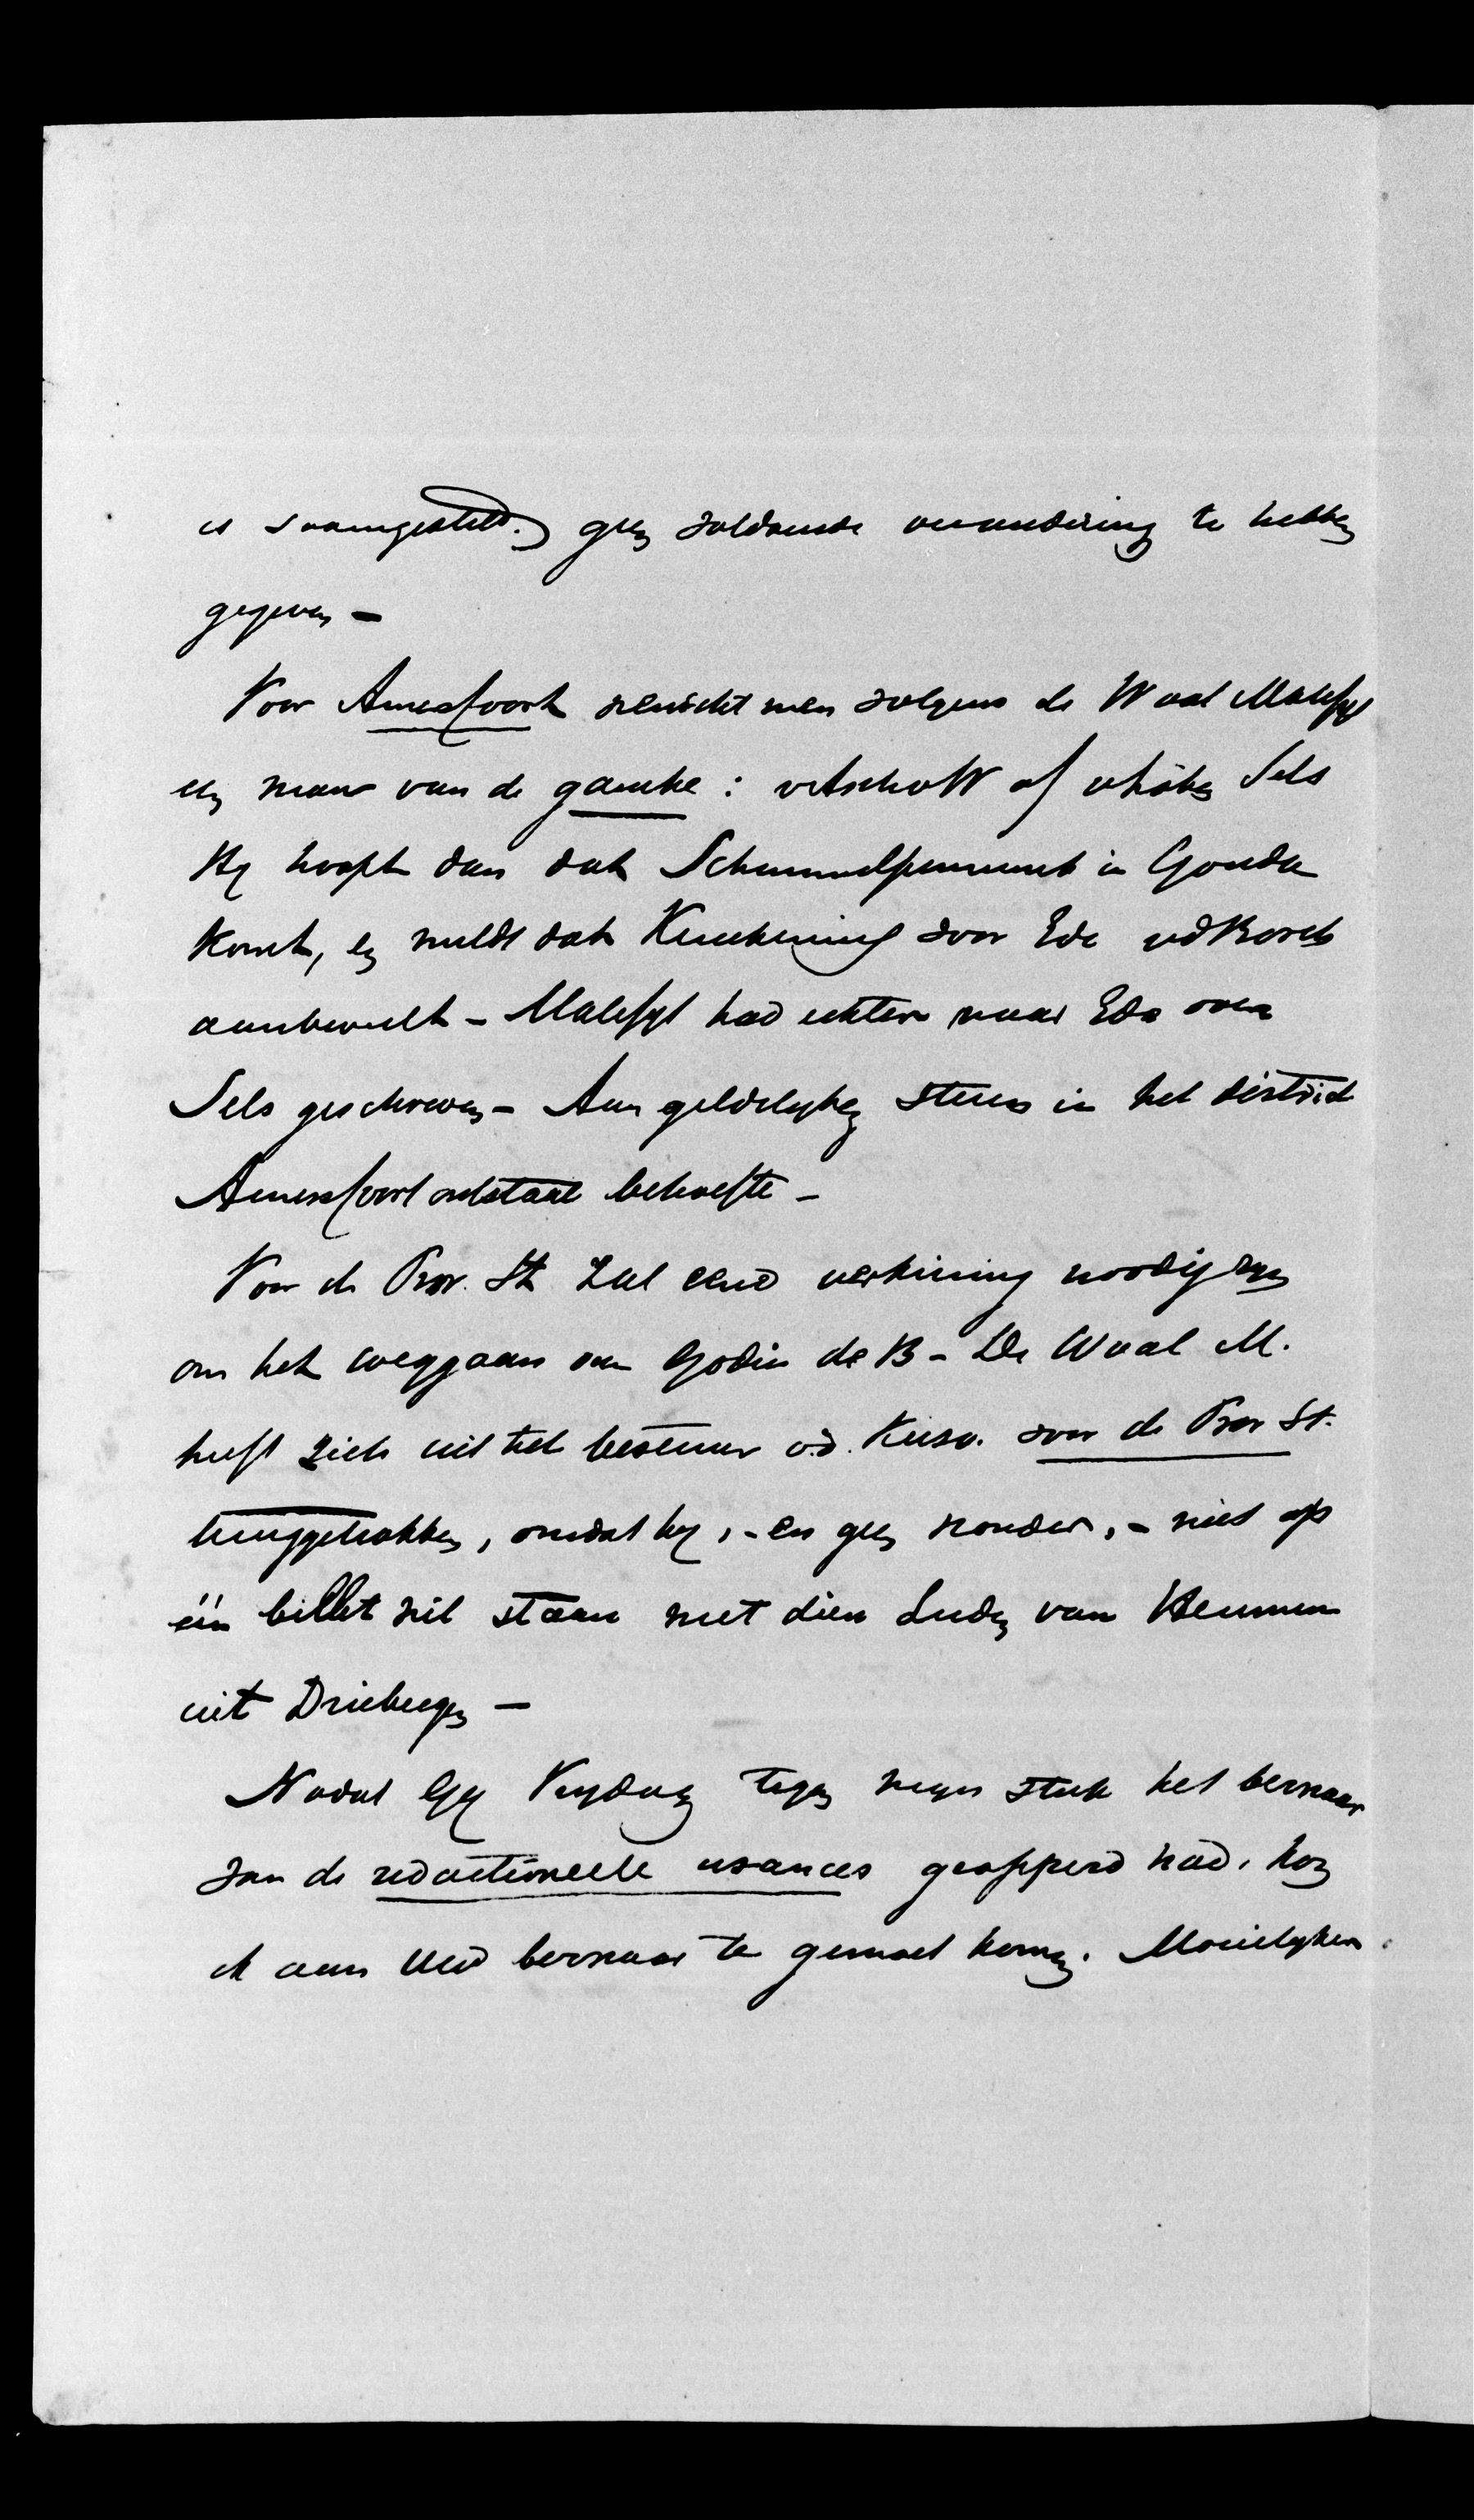 is saamgesteld.) geen voldoende verandering te hebben
gegeven –
Voor Amersfoort wenscht men volgens de Waal Malefyt
een man van de gauche: of Sels
Hy hoopt dan dat Schimmelpenninck in Gouda
komt, en meldt dat Keuchenius voor Ede vd Borch
aanbeveelt – Malefyt had echter naar Ede over
Sels geschreven – Aan geldelyken steun in het district
Amersfoort ontstaat behoefte –
Voor de Prov. St. zal eene verkiezing noodig zyn
om het weggaan van Godin de B – De Waal M.
heeft zich uit het bestuur v.d. Kiesv. voor de Prov St.
teruggetrokken, omdat hy, – en geen wonder, – niet op
één billet wil staan met dien Luden van Heumen
uit Driebergen –
Nadat Gy Vrydag tegen myn stuk het bezwaar
van de redactioneele usances geopperd had, kon
ik aan Uw bezwaar te gemoet komen. Moeielyker